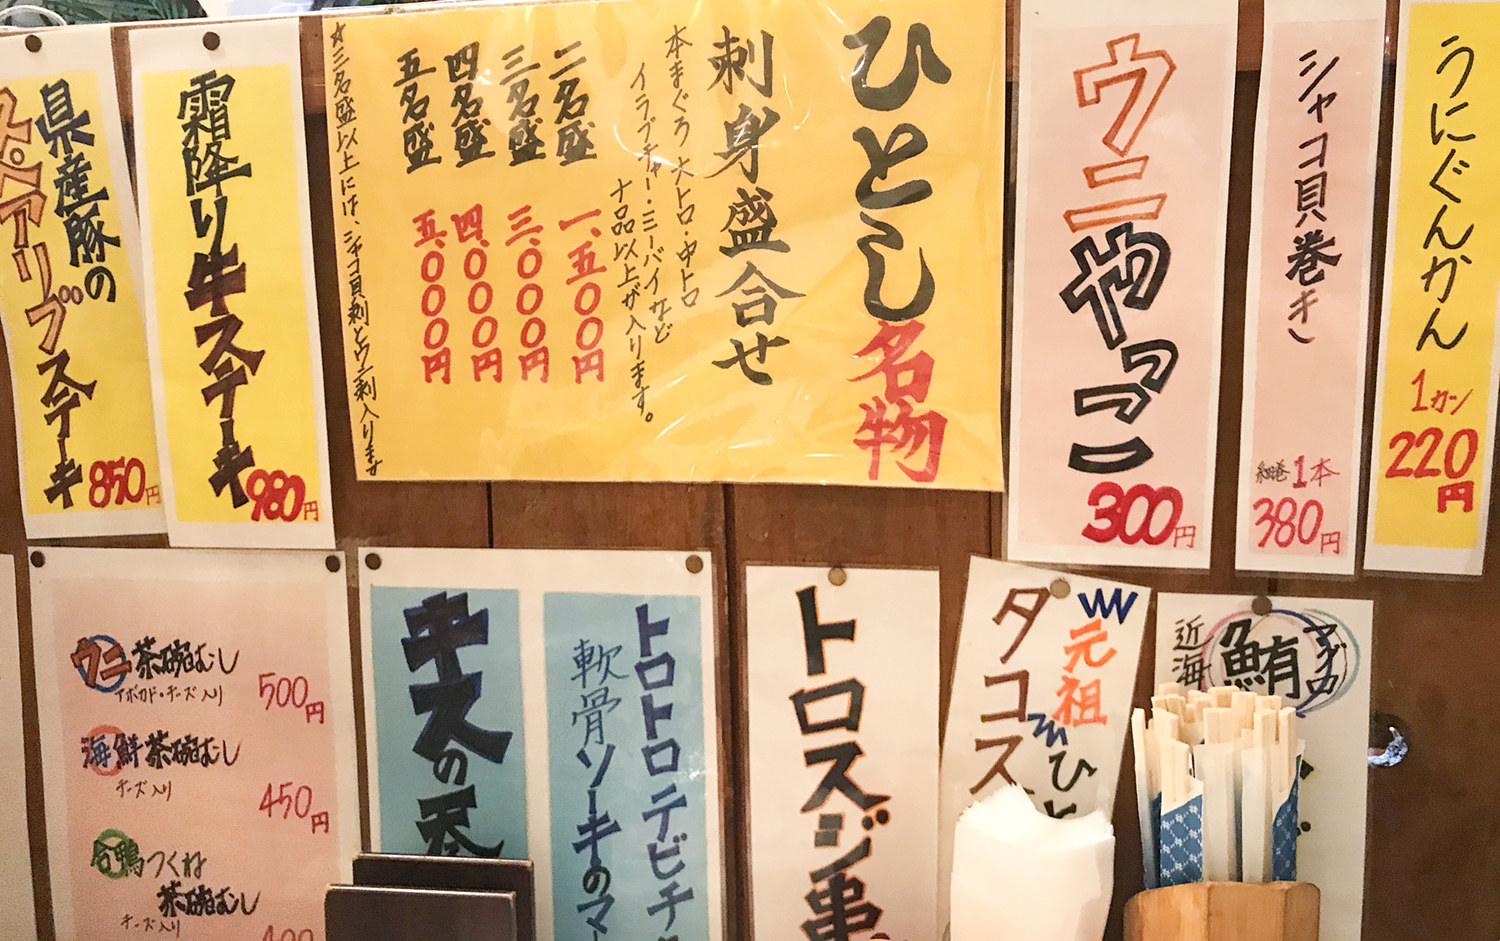 うにぐんかん
1カン
220円
シャコ貝巻き
細巻1本
380円
ウニやっこ
300円
ひとし名物
刺身盛合せ
本まぐろ大トロ・中トロ
イラブチャー・ミーバイなど
ナ品以上が入ります。
二名盛 一、五〇〇円
三名盛 三、〇〇〇円
四名盛 四、〇〇〇円
五名盛 五、〇〇〇円
☆三名盛以上には、シャコ貝刺とウニ刺入ります
霜降り牛ステーキ
980円
県産豚の
スペアリブステーキ
850円
近海
鮪
アボカ
元祖
ひと
タコス
トロスジ串
トロトロテビチ
軟骨ソーキのマー
牛スの
ウニ茶碗むし
アボカド・チーズ入り
500円
海鮮茶碗むし
チーズ入り
450円
合鴨つくね
茶碗むし
チーズ入り